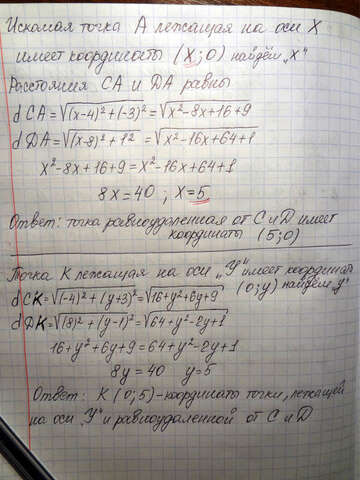 Искомая точка А лежащая на оси Х
имеет координаты (х;0) найдём „х"
Расстояния СА и DA равны
dCA=√(x-4)²+(-3)²=√x²-8x+16+9
dDA=√(x-8)²+12=√x²-16x+64+1
x²-8x+16+9=x²-16x+64+1
8x=40 ; x=5
Ответ: точка равноудаленная от С и D имеет
координаты (5;0)
Точка К лежащая на оси „У" имеет координаты
(0;y) найдём „y"
dCK=√(-4)²+(y+3)²=√16+y²+6y+9
dDK=√(8)²+(y-1)²=√64+y²-2y+1
16+y²+6y+9=64+y²-2y+1
8y=40 y=5
Ответ: К (0;5)-координаты точки, лежащей
на оси „У" и равноудаленной от С и D